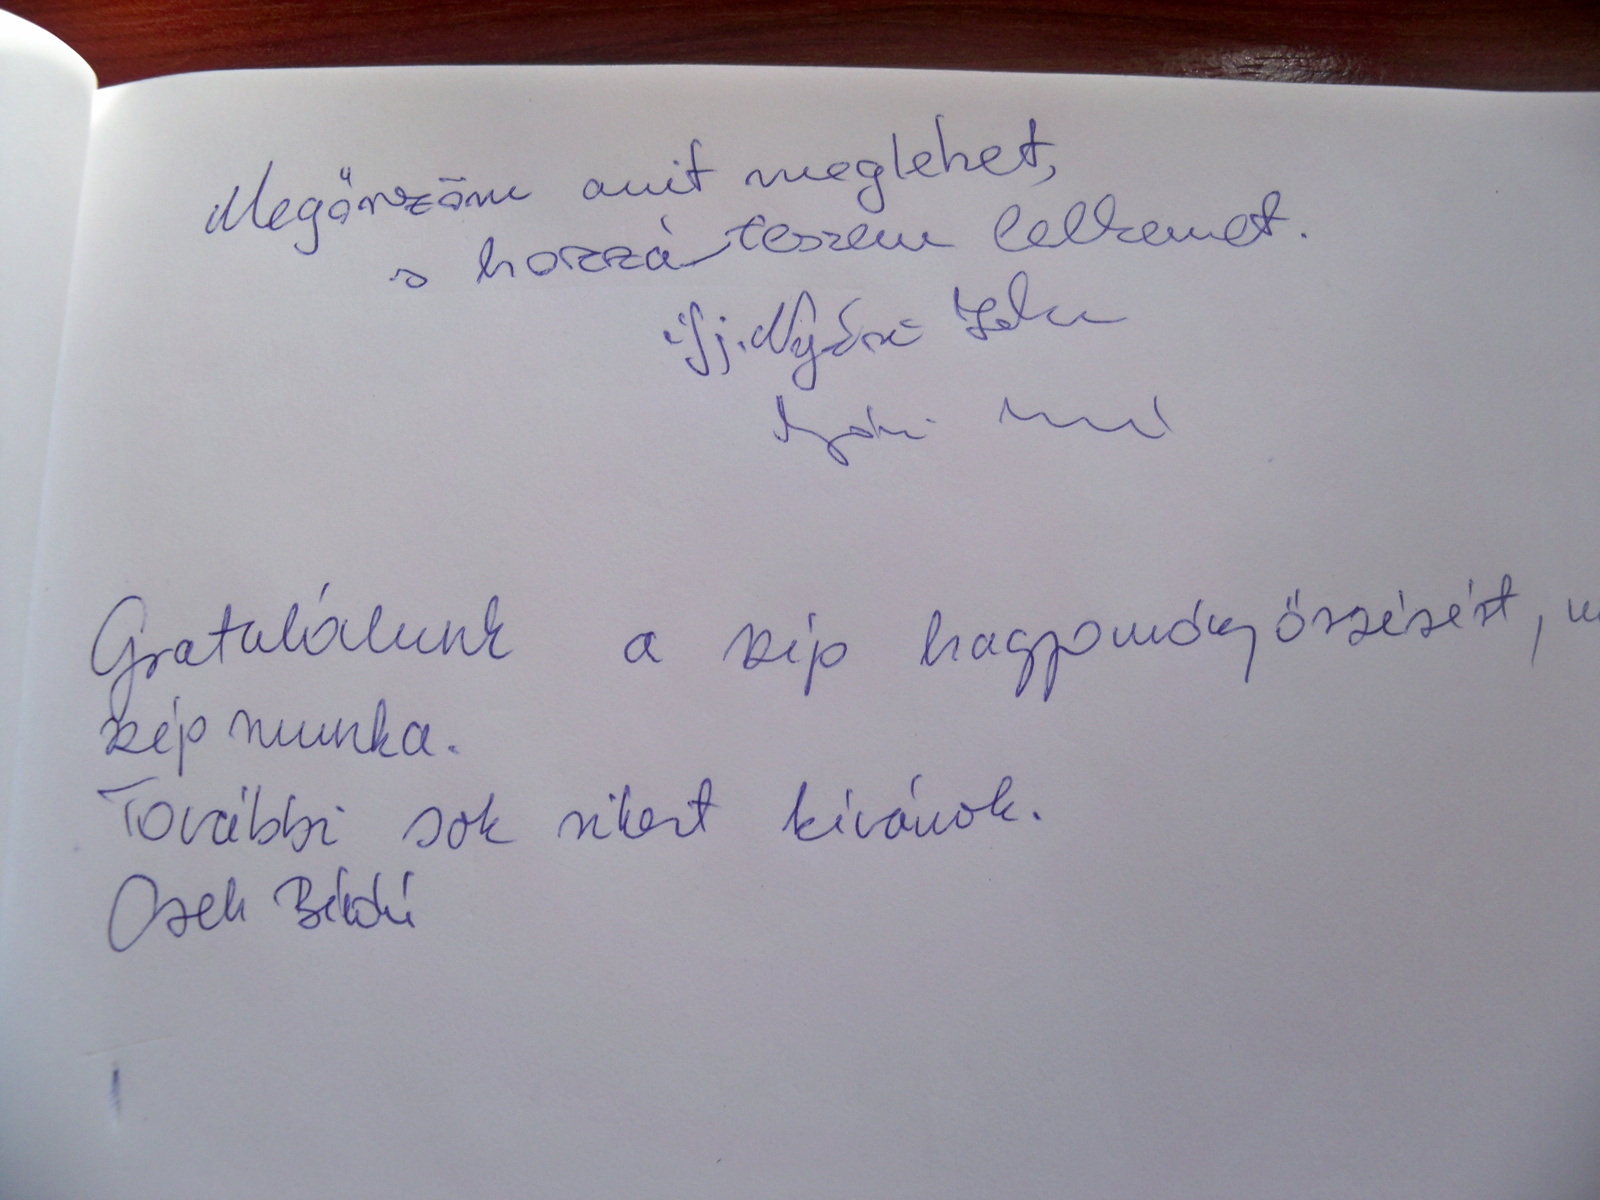 Megőrzöm amit meglehet,
s hozzá teszem lelkemet.
ifj. Nyári
Nyári
Gratulálunk a szép hagyományőrzésért,
szép munka.
További sok sikert kívánok.